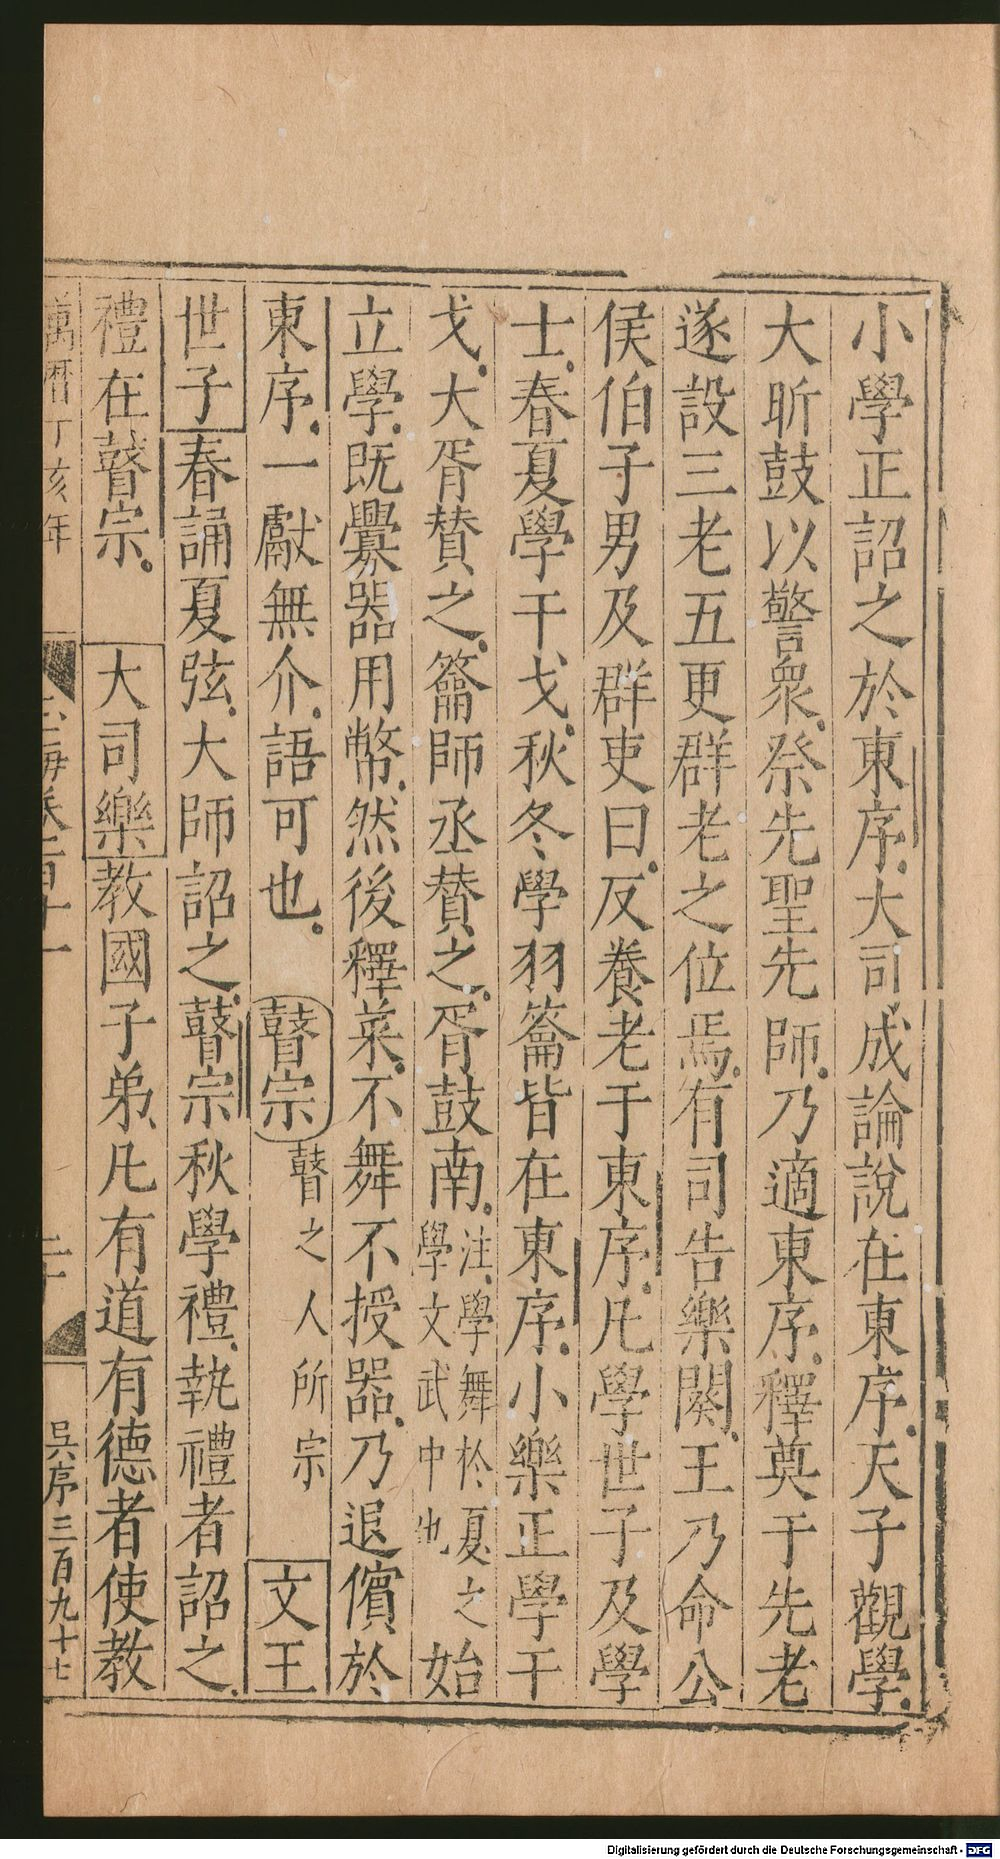 小學正詔之於東序大司成論說在東序天子觀學
大昕鼓以警衆祭先聖先師乃適東序釋奠于先老
遂設三老五更群老之位焉有司告樂闋王乃命公
侯伯子男及群吏曰反養老于東序凡學世子及學
士春夏學干戈秋冬學羽籥皆在東序小樂正學干
戈大胥賛之籥師丞賛之胥鼓南注學舞於夏之學文武中也始
立學既釁器用幣然後釋菜不舞不授器乃退儐於
東序一獻無介語可也 瞽宗 瞽之人所宗 文王
世子春誦夏弦大師詔之瞽宗秋學禮執禮者詔之
禮在瞽宗 大司樂教國子弟凡有道有德者使教
萬曆丁亥年 玉海卷一百十一 二十 吳序三百九十七
Digitalisierung gefördert durch die Deutsche Forschungsgemeinschaft - DFG